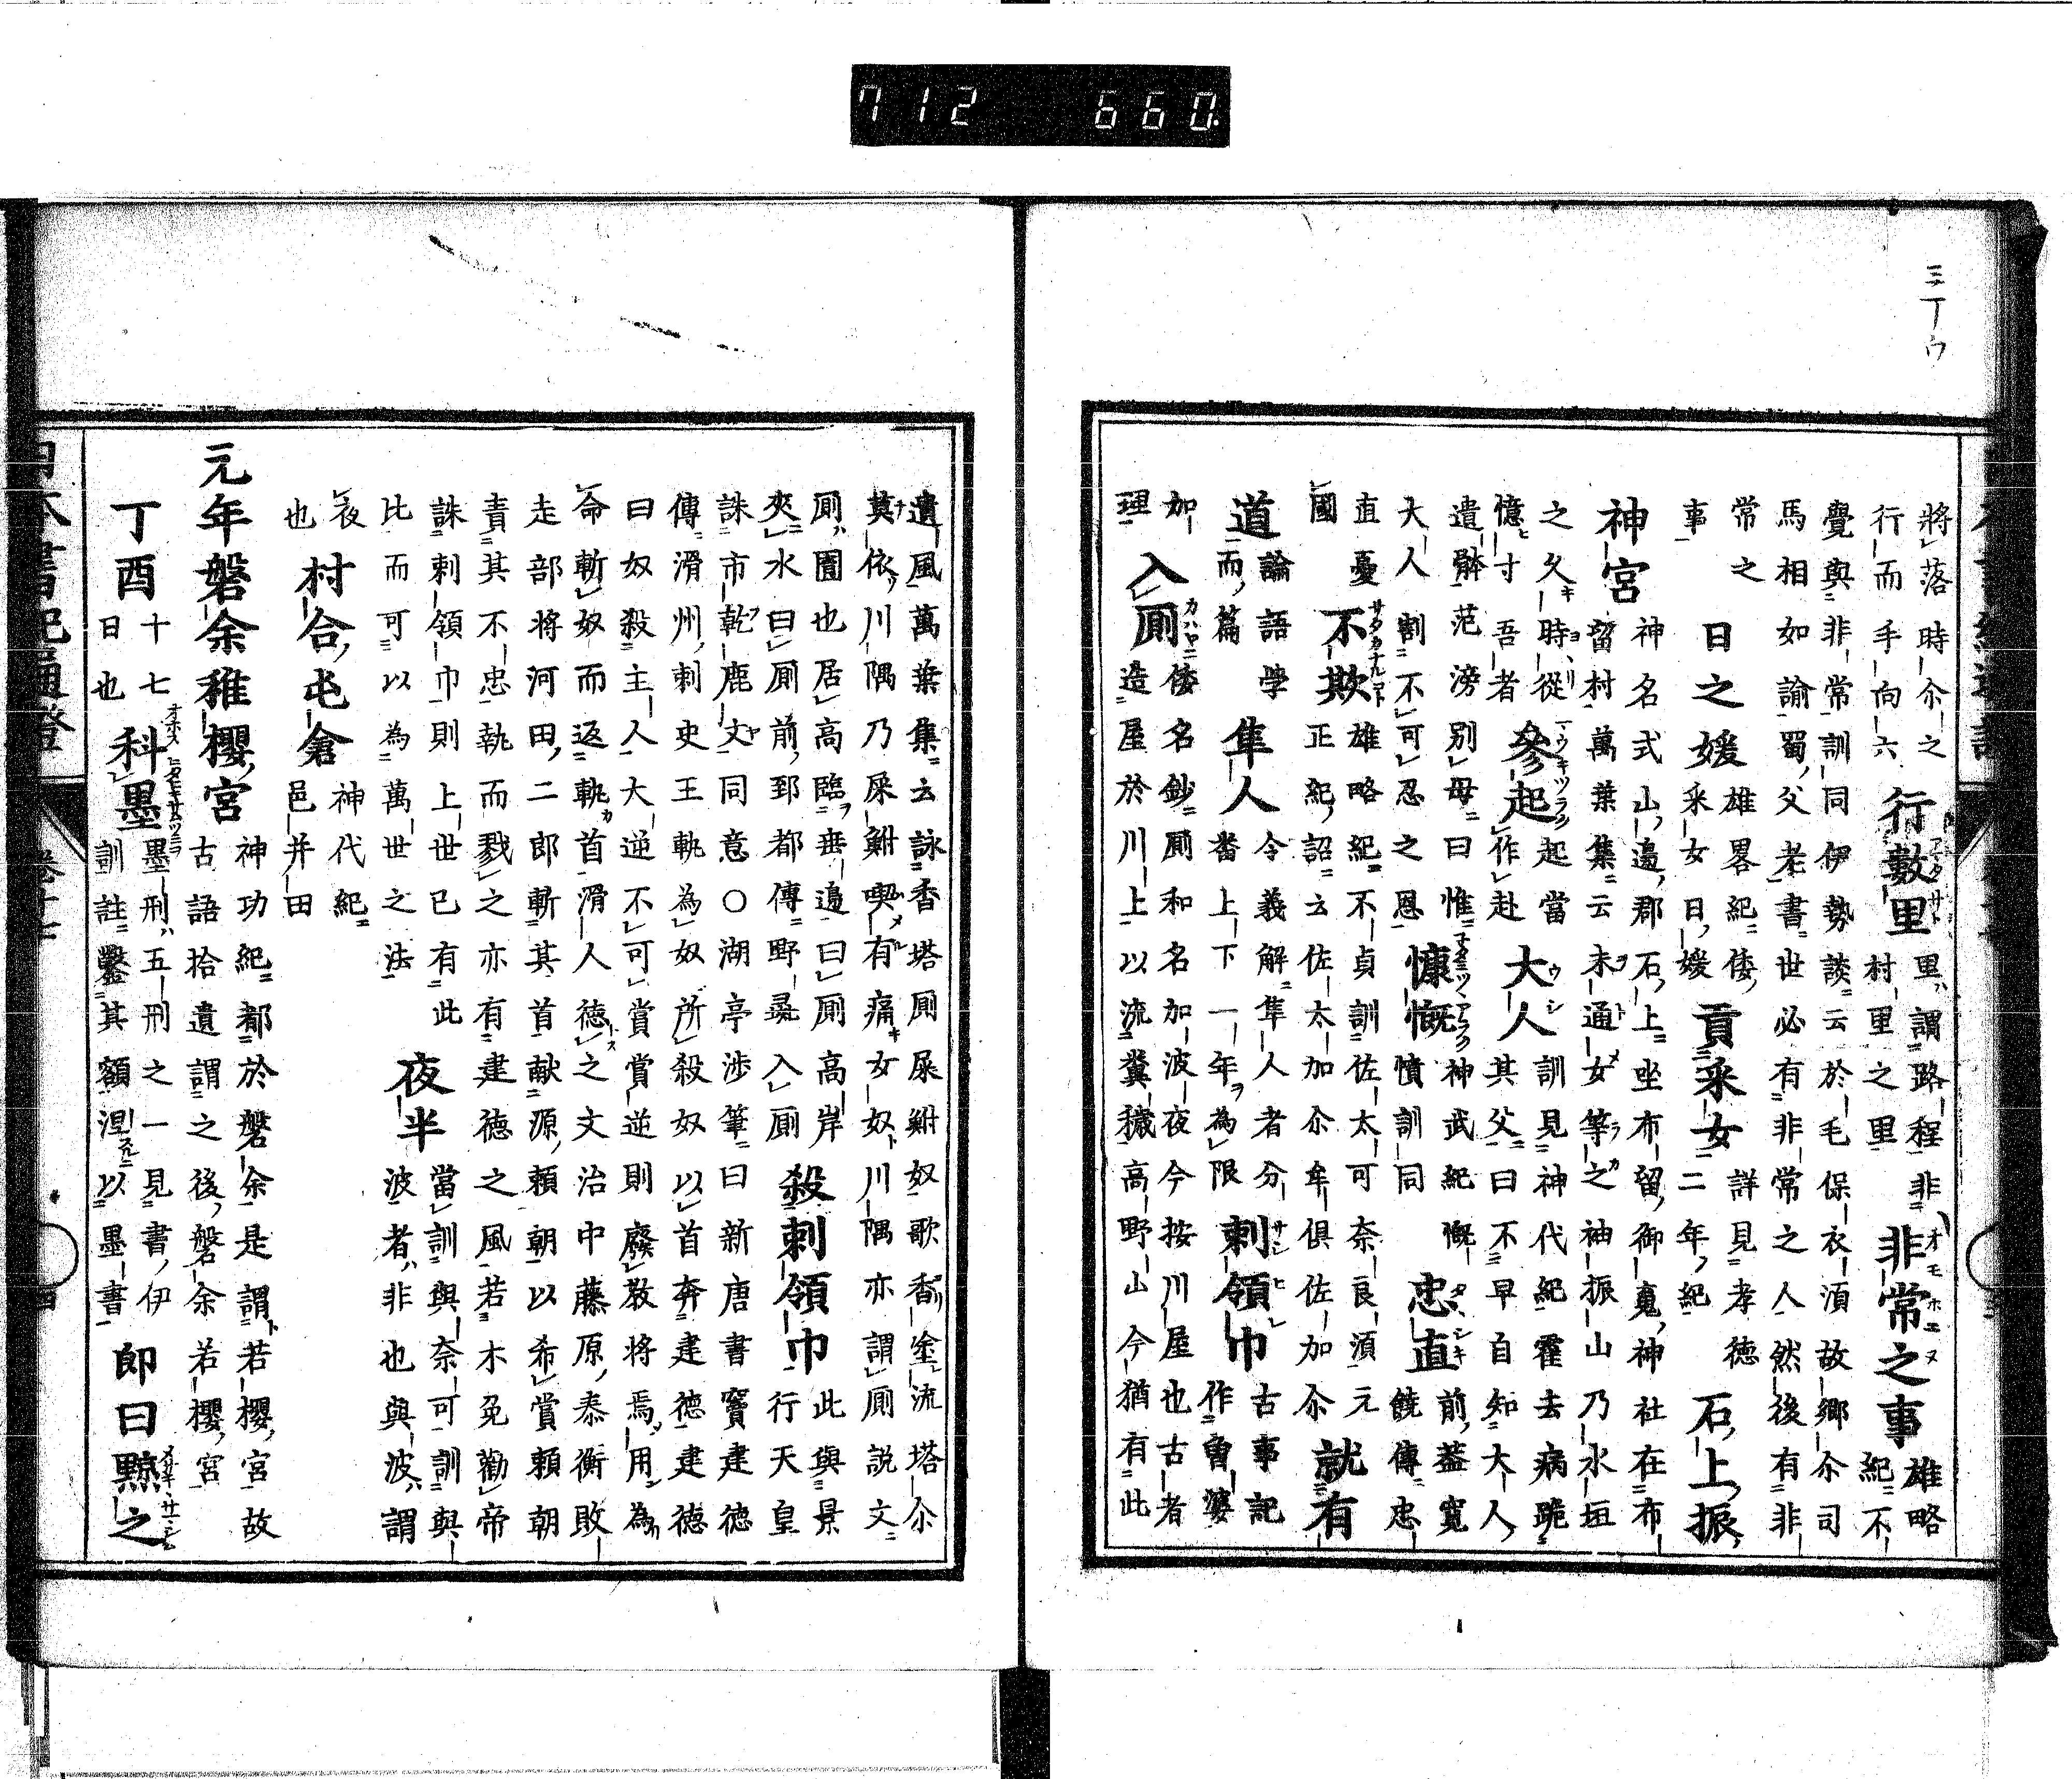 712 660
三丁ウ
將落時尒之
行而手向六
行數里
里謂路程非
村里之里
非常之事
雄略
紀不
覺與非常訓同伊勢談云於毛保衣湏故郷尒司
馬相如諭蜀父老書世必有非常之人然後有非
常之
事
日之媛
雄畧紀倭
采女日媛
貢采女
詳見孝徳
二年紀
石上振
神宮
神名式山邉郡石上坐布留御寬神社在布
留村萬葉集云未通女等之袖振山乃水垣
之久時從
憶寸吾者
參起
起當
作赴
大人
訓見神代紀霍去病跪
其父曰不早自知大人
遺骵范滂别母曰惟
大人割不可忍之恩
慷慨
神武紀慨
憤訓同
忠直
前蓋寬
饒傳忠
直
憂
不欺
雄略紀不貞訓佐太可奈良湏元
正紀詔云佐太加尒牟俱佐加尒
就有
國
道
論語學
而篇
隼人
令義解隼人者分
番上下一年為限
刺領巾
古事記
作曽婆
加
理
入厠
倭名鈔厠和名加波夜今按川屋也古者
造屋於川上以流糞穢高野山今猶有此
遺風萬葉集云詠香塔厠屎鮒奴歌香塗流塔尒
莫依川隅乃屎鮒喫有痛女奴川隅亦謂厠説文
厠圊也居高臨垂邉曰厠高岸
夾水曰厠前郅都傳野彘入厠
殺刺領巾
此與景
行天皇
誅市乾鹿文同意○湖亭渉筆曰新唐書竇建徳
傳滑州刺史王軌為奴所殺奴以首奔建徳建徳
曰奴殺主人大逆不可賞賞逆則廢教將焉用為
命斬奴而返軌首滑人徳之文治中藤原泰衡敗
走部将河田二郎斬其首献源頼朝以希賞頼朝
責其不忠執而戮之亦有建徳之風若木免勸帝
誅刺領巾則上世已有此
比而可以為萬世之法
夜半
當訓與奈可訓與
波者非也與波謂
夜
也
村合屯倉
神代紀
邑并田
元年磐余稚櫻宮
神功紀都於磐余是謂若櫻宮故
古語拾遺謂之後磐余若櫻宮
丁酉
十七
日也
科墨
墨刑五刑之一見書伊
訓註鑿其額涅以墨書
即日黥之